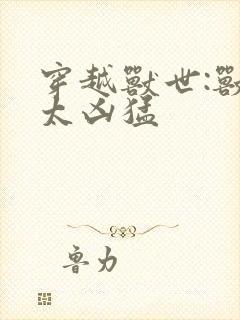 穿越獸世:獸
太凶猛
魯力